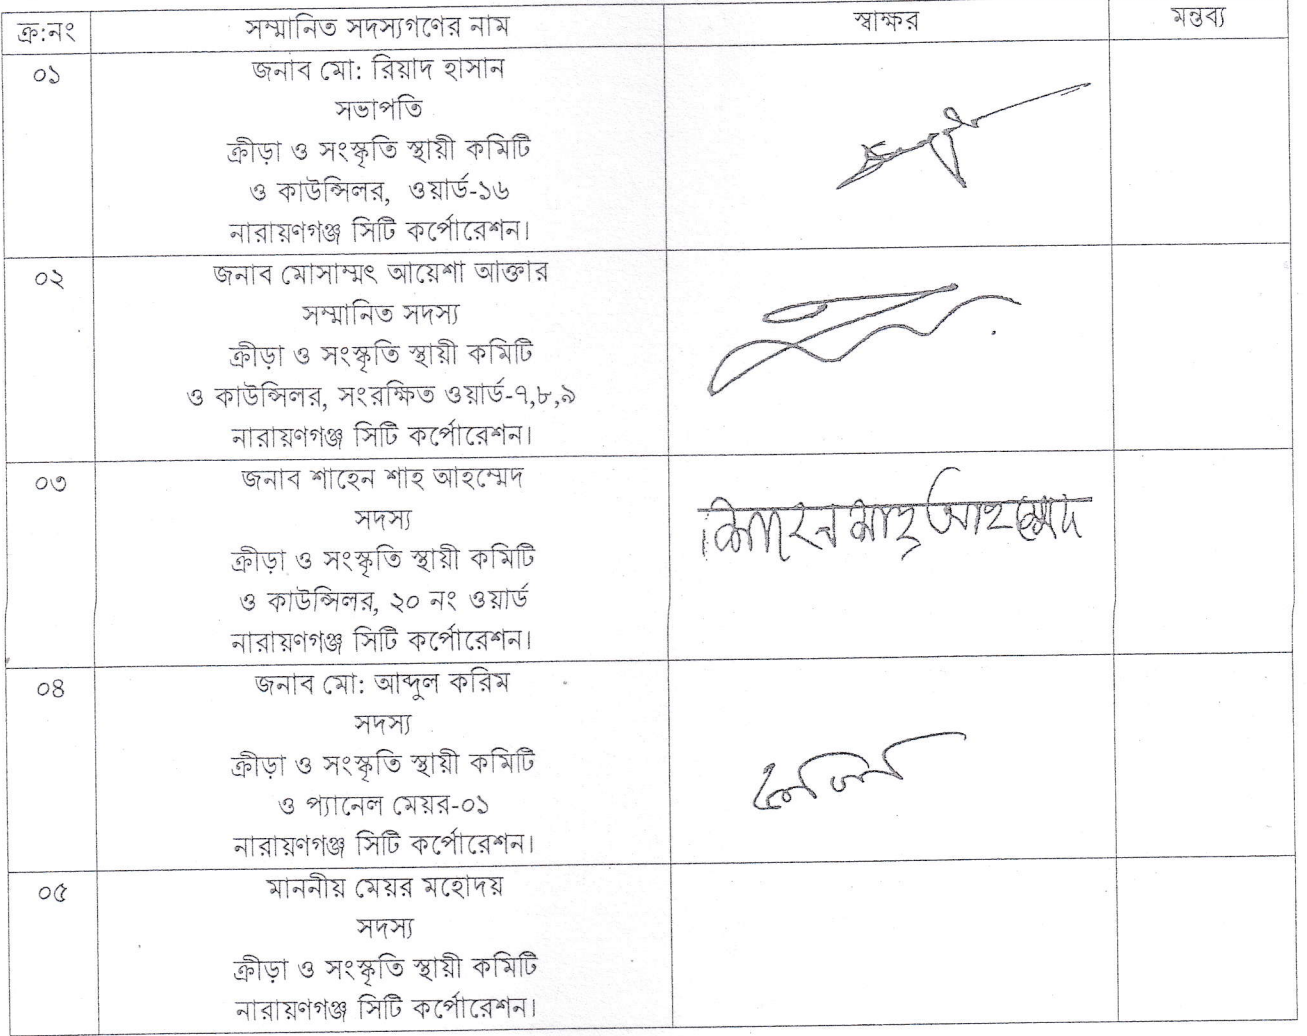 ক্র:নং সম্মানিত সদস্যগণের নাম স্বাক্ষর মন্তব্য
০১ জনাব মো: রিয়াদ হাসান
সভাপতি
ক্রীড়া ও সংস্কৃতি স্থায়ী কমিটি
ও কাউন্সিলর, ওয়ার্ড-১৬
নারায়ণগঞ্জ সিটি কর্পোরেশন।
০২ জনাব মোসাম্মৎ আয়েশা আক্তার
সম্মানিত সদস্য
ক্রীড়া ও সংস্কৃতি স্থায়ী কমিটি
ও কাউন্সিলর, সংরক্ষিত ওয়ার্ড-৭,৮,৯
নারায়ণগঞ্জ সিটি কর্পোরেশন।
০৩ জনাব শাহেন শাহ আহম্মেদ
সদস্য
ক্রীড়া ও সংস্কৃতি স্থায়ী কমিটি
ও কাউন্সিলর, ২০ নং ওয়ার্ড
নারায়ণগঞ্জ সিটি কর্পোরেশন।
শাহেন শাহ আহম্মেদ
০৪ জনাব মো: আব্দুল করিম
সদস্য
ক্রীড়া ও সংস্কৃতি স্থায়ী কমিটি
ও প্যানেল মেয়র-০১
নারায়ণগঞ্জ সিটি কর্পোরেশন।
০৫ মাননীয় মেয়র মহোদয়
সদস্য
ক্রীড়া ও সংস্কৃতি স্থায়ী কমিটি
নারায়ণগঞ্জ সিটি কর্পোরেশন।